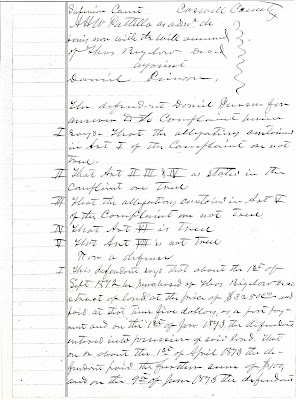 Superior Court Caswell County
A H W Pattillo as adm'r de
bonis non with the will annexed
of Thos Bigelow Decd
against
Daniel

The defendant Daniel for
answer to the Complaint herein
I says That the allegations contained
in Art I of the Complaint are not
true.
II That Art II III & IV as stated in the
Complaint are true
III That the allegations contained in Art V
of the Complaint are not true
IV That Art VI is true
V That Art is not true
For a defense
I This defendant says that about the 1st of
Sept 1872 he purchased of Thos Bigelow decd
a tract of land at the price of and
paid at that time five dollars, as a part pay-
ment and on the 1st of Jan 1873 the defendant
entered into possession of said land, that
on or about the 1st of April 1873 the de-
fendant paid the further sum of $100,
and on the 9th of June 1873 the defendant